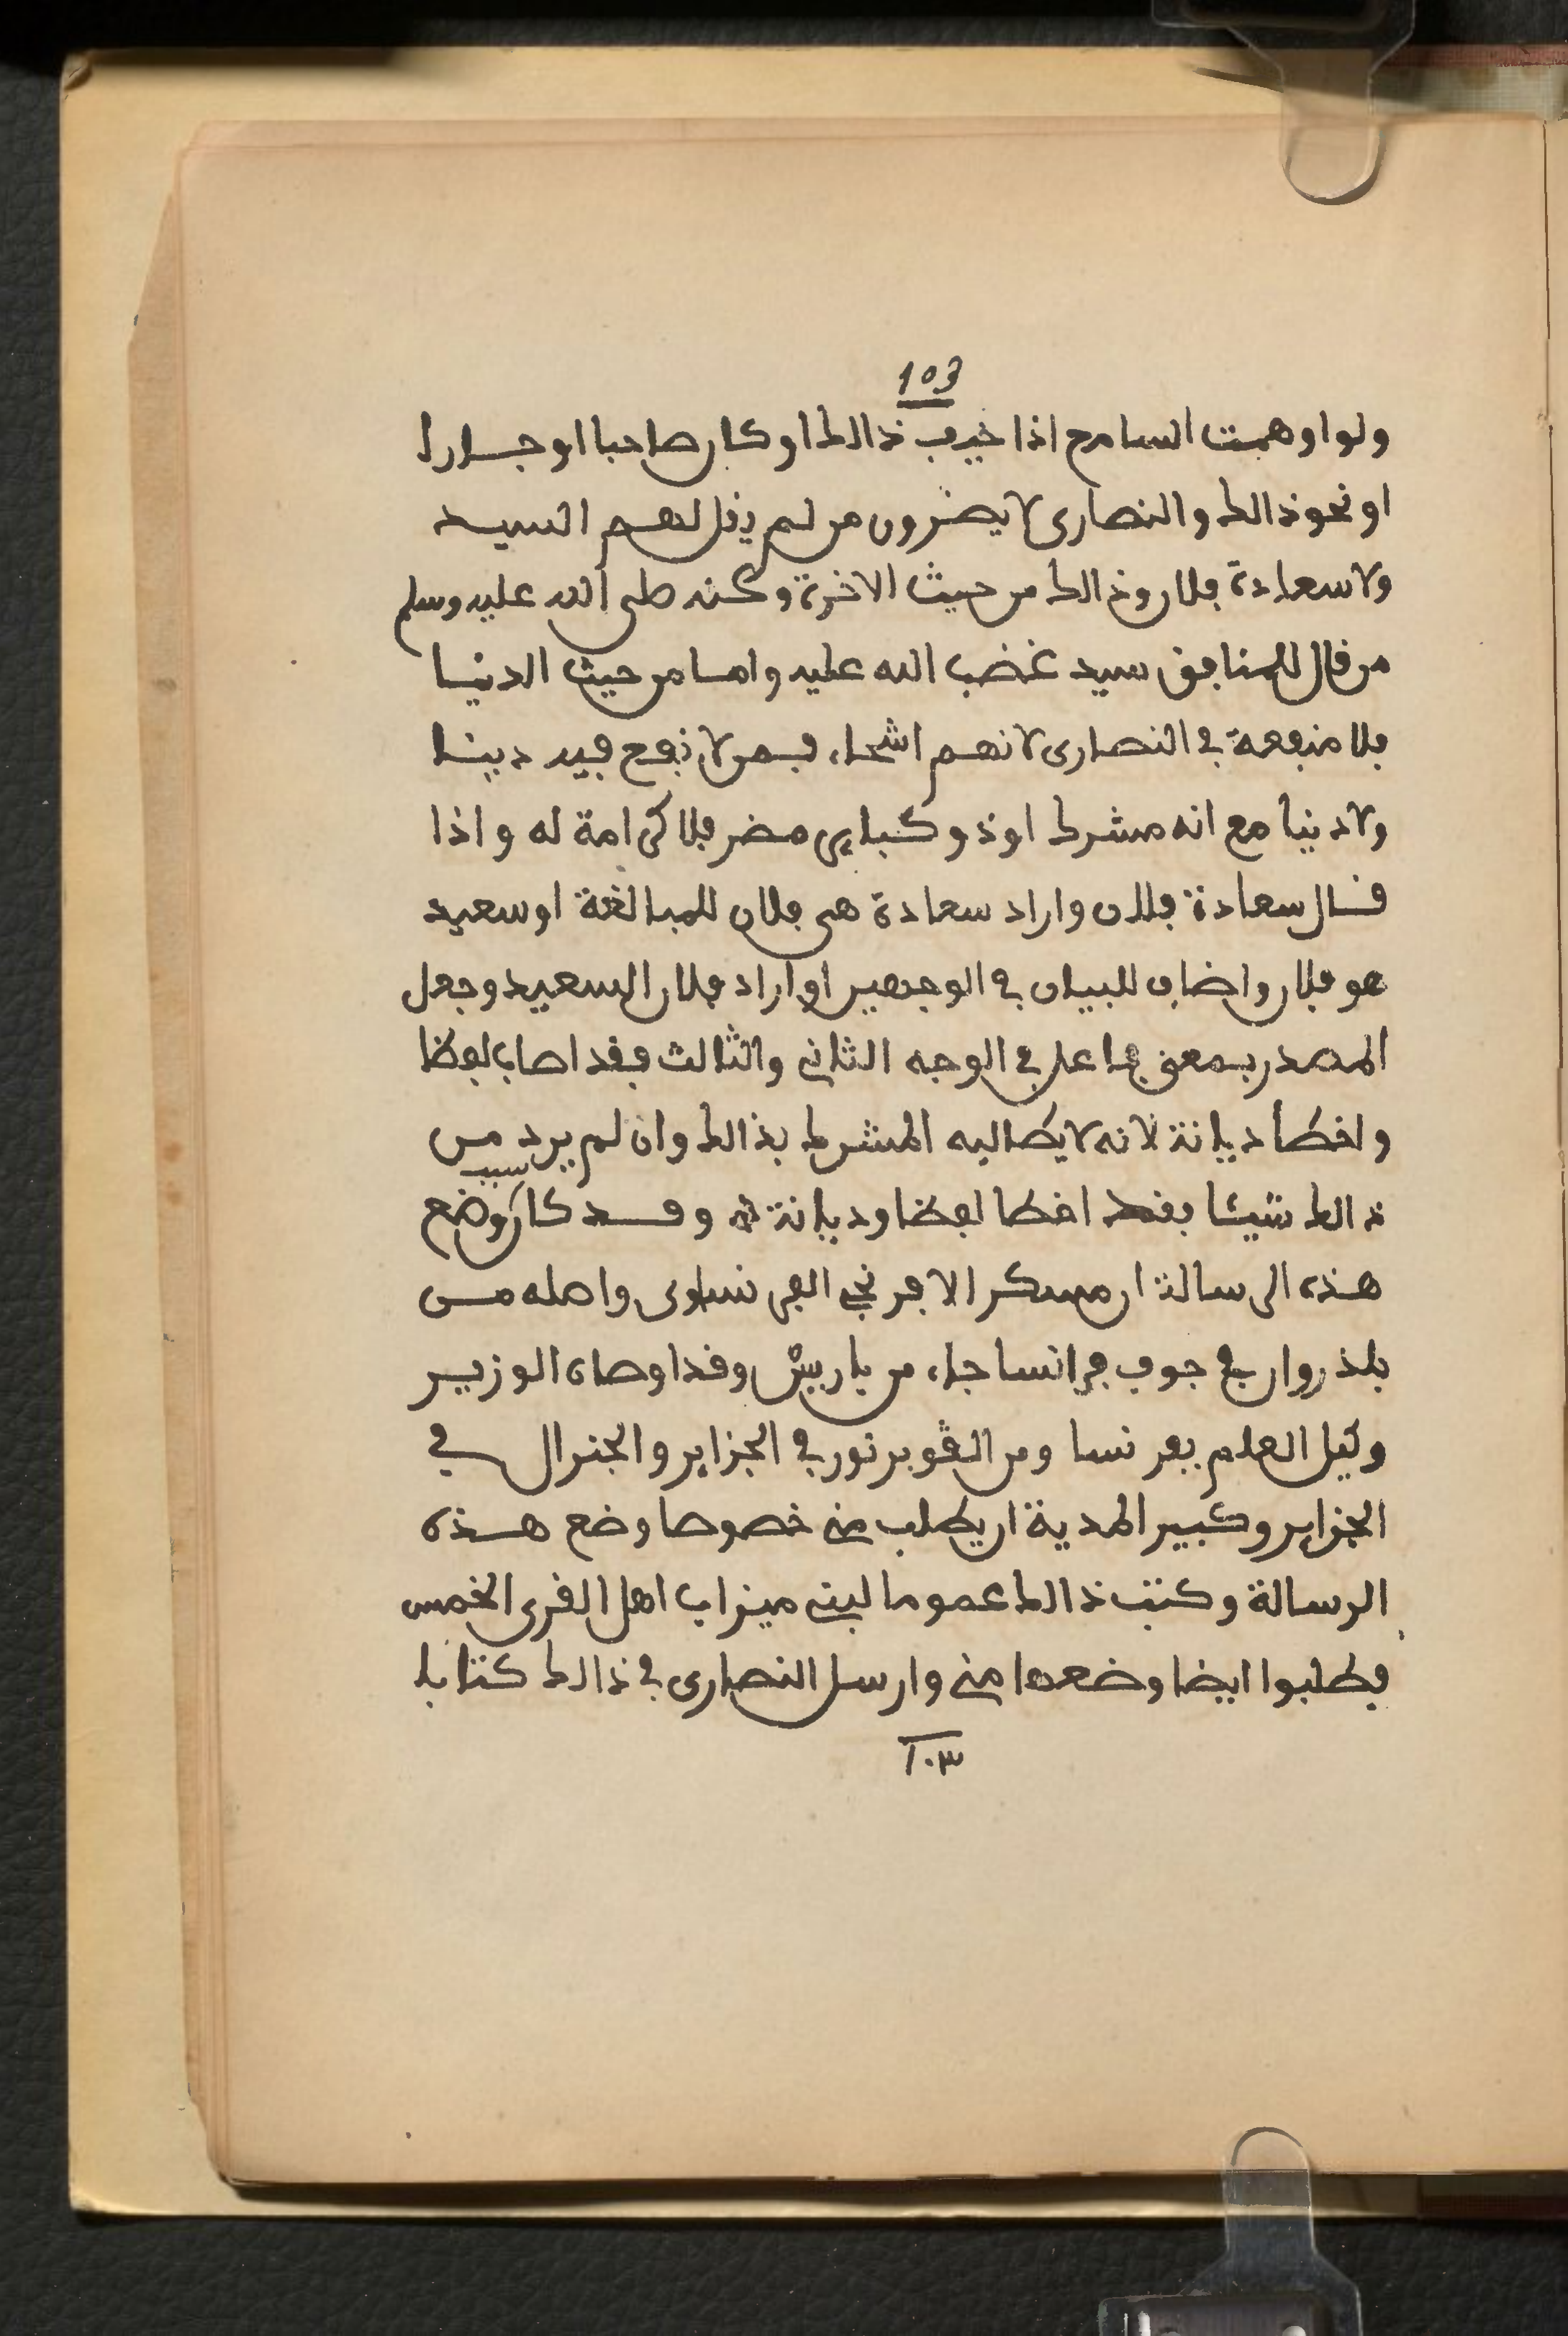 103
ولو اوهمت السامع اذا خيف ذالك او كان صاحبا او جارا
او نحو ذالك والنصارى لا يضرون من لم يقل لهم السيد
ولا سعادة فلان وذالك من حيث الاخرة وعنه صلى الله عليه وسلم
من قال للمنافق سيد غضب الله عليه واما من حيث الدنيا
فلا منفعة في النصارى لانهم اشحاء فمن لا نفع فيه دينا
ولا دنيا مع انه مشرك او ذو كباير مضر فلا كرامة له واذا
قال سعادة فلان واراد سعادة هي فلان للمبالغة او سعيد
هو فلان واضاف للبيان في الوجهين او اراد فلان السعيد وجعل
المصدر بمعنى فاعل في الوجه الثاني والثالث فقد اصاب لفظا
واخطأ ديانة لانه لا يخاطب المشرك بذالك وان لم يرد من
ذالك شيئا فقد اخطا لفظا وديانة وقد كان سبب وضع
هذه الرسالة ان مسكر الافرنجي الفرنساوي واصله من
بلد روان في جوف فرانسا جاء من باريش وقد اوصاه الوزير
وكيل العلم بفرنسا ومن الڤوبرنور في الجزاير والجنرال في
الجزاير وكبير المدية ان يطلب مني خصوصا وضع هذه
الرسالة وكتب ذالك عموما لبني ميزاب اهل القرى الخمس
فطلبوا ايضا وضعها مني وارسل النصارى في ذالك كتابا
١٠٣